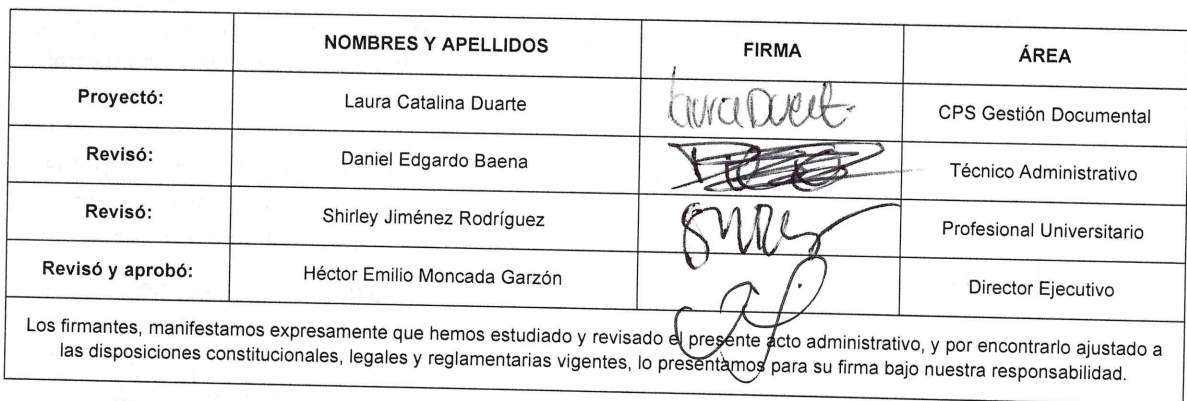 NOMBRES Y APELLIDOS FIRMA ÁREA
Proyectó: Laura Catalina Duarte CPS Gestión Documental
Revisó: Daniel Edgardo Baena Técnico Administrativo
Revisó: Shirley Jiménez Rodríguez Profesional Universitario
Revisó y aprobó: Héctor Emilio Moncada Garzón Director Ejecutivo
Los firmantes, manifestamos expresamente que hemos estudiado y revisado el presente acto administrativo, y por encontrarlo ajustado a
las disposiciones constitucionales, legales y reglamentarias vigentes, lo presentamos para su firma bajo nuestra responsabilidad.